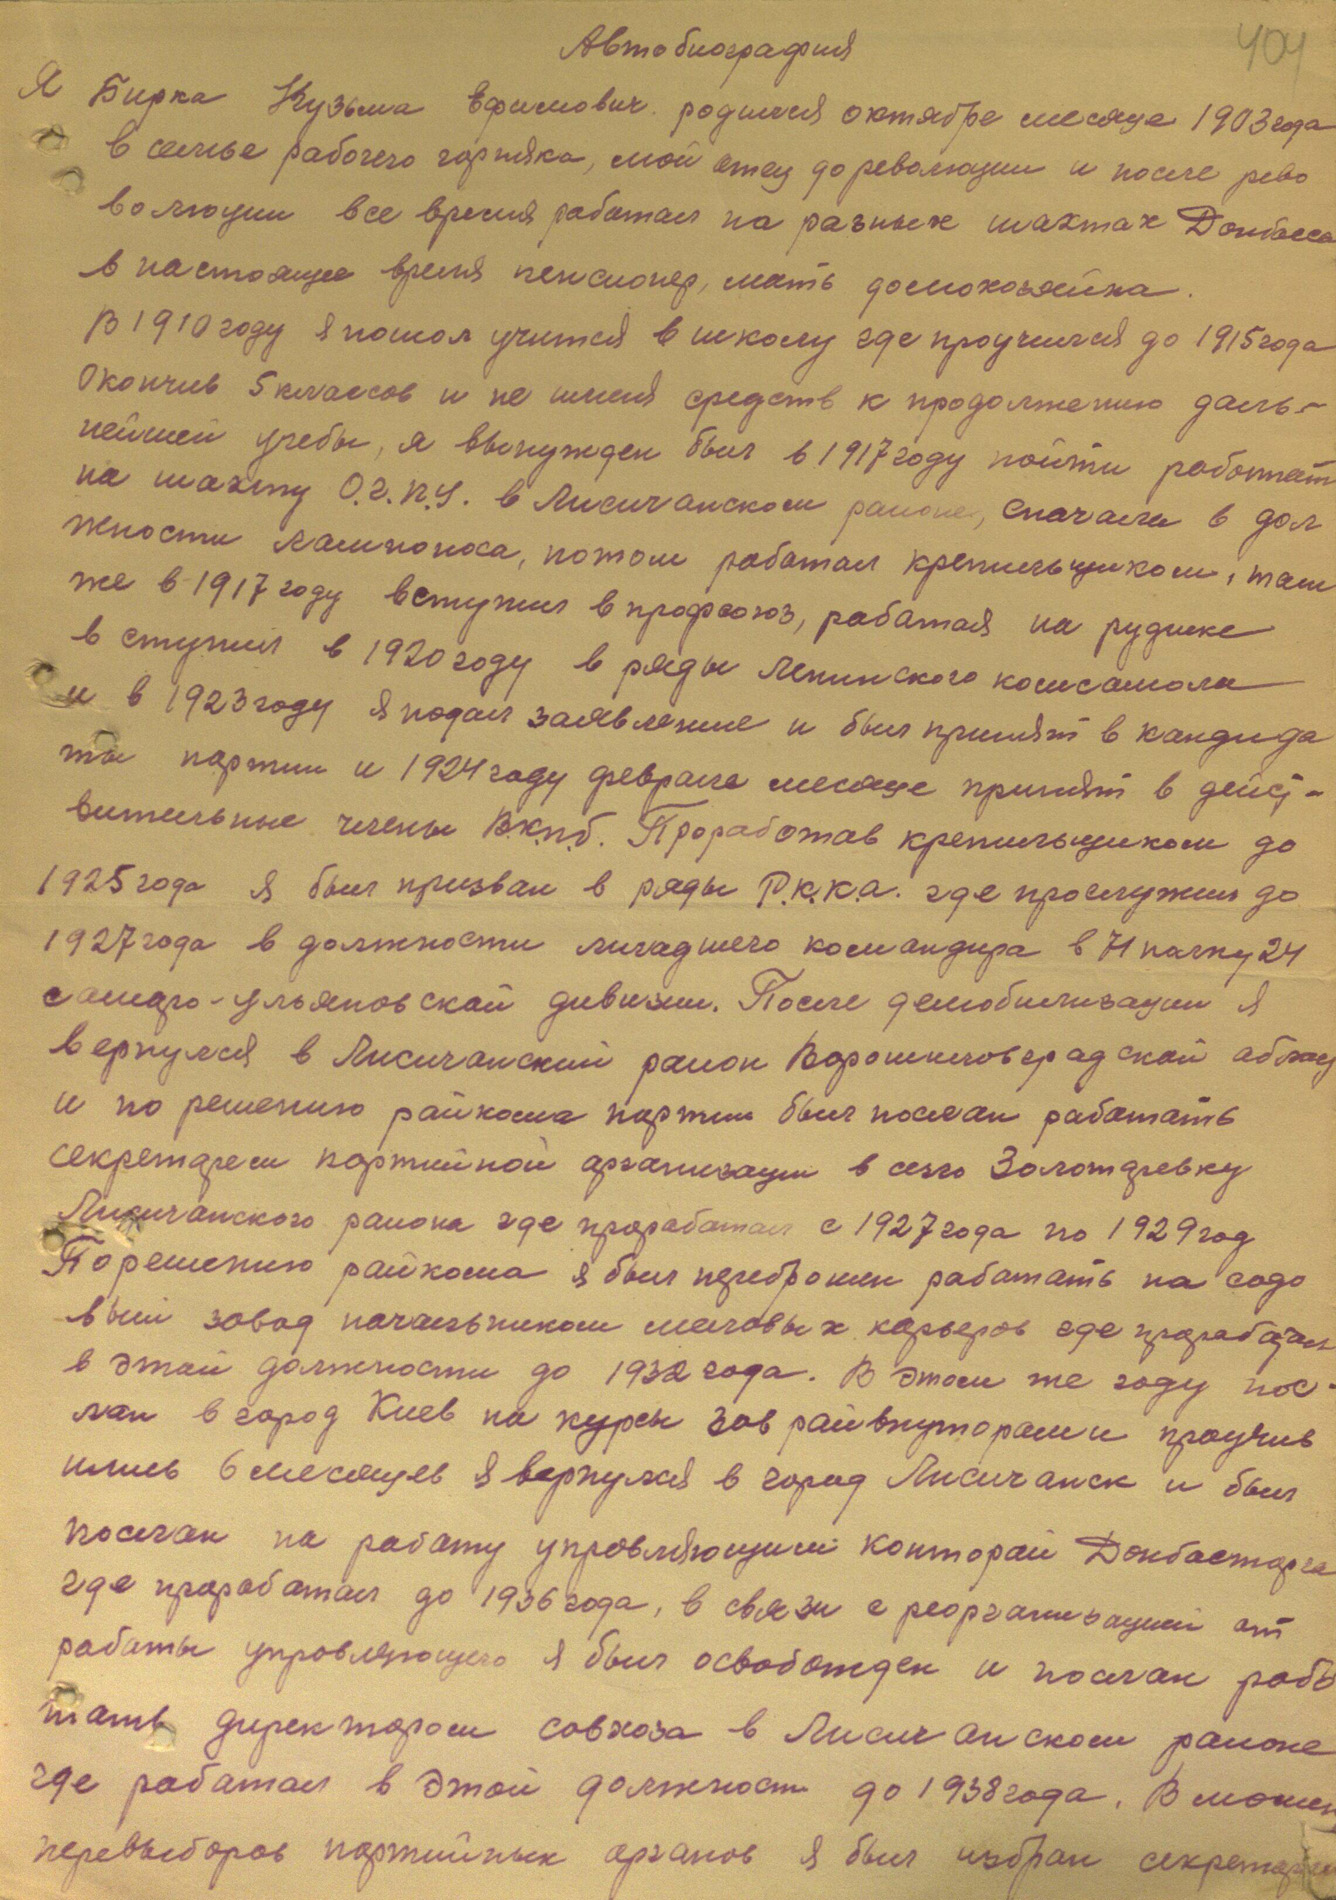 404
Автобиография
Я Бирка Кузьма Ефимович родился октябре месяце 1903 года
в семье рабочего горняка, мой отец до революции и после рево
волюции все время работал на разных шахтах Донбасса
в настоящее время пенсионер, мать домохозяйка.
В 1910 году я пошол учится в школу где проучился до 1915 года
Окончив 5 классов и не имея средств к продолжению даль-
нейшей учебы, я вынужден был в 1917 году пойти работать
на шахту О.Г.П.У. в Лисичанском районе, сначала в дол
жности лампоноса, потом работал крепильщиком, там
же в 1917 году вступил в профсоюз, работая на руднике
вступил в 1920 году в ряды Ленинского комсамола
и в 1923 году я подал заявление и был принят в кандида
ты партии и 1924 году феврале месяце принят в дейст-
вительные члены В.К.П.б. Проработав крепильщиком до
1925 года я был призван в ряды Р.К.К.А. где прослужил до
1927 года в должности младшего командира в 71 полку 24
самаро-ульяновской дивизии. После демобилизации я
вернулся в Лисичанский район Ворошиловградской област
и по решению райкома партии был послан работать
секретарем партийной организации в село Золотаревку
Лисичанского района где проработал с 1927 года по 1929 год
По решению райкома я был переброшен работать на содо
вый завод начальником меловых карьеров где проработал
в этой должности до 1932 года. В этом же году пос-
лан в город Киев на курсы зав райвнуторгами проучив
шись 6 месяцев я вернулся в город Лисичанск и был
послан на работу управляющим конторай Донбасторга
где проработал до 1936 года, в связи с реорганизацией от
работы управляющего я был освобожден и послан рабо
тать директором совхоза в Лисичанском районе
где работал в этой должност до 1938 года. В момент
перевыборов партийных органов я был избран секретарем